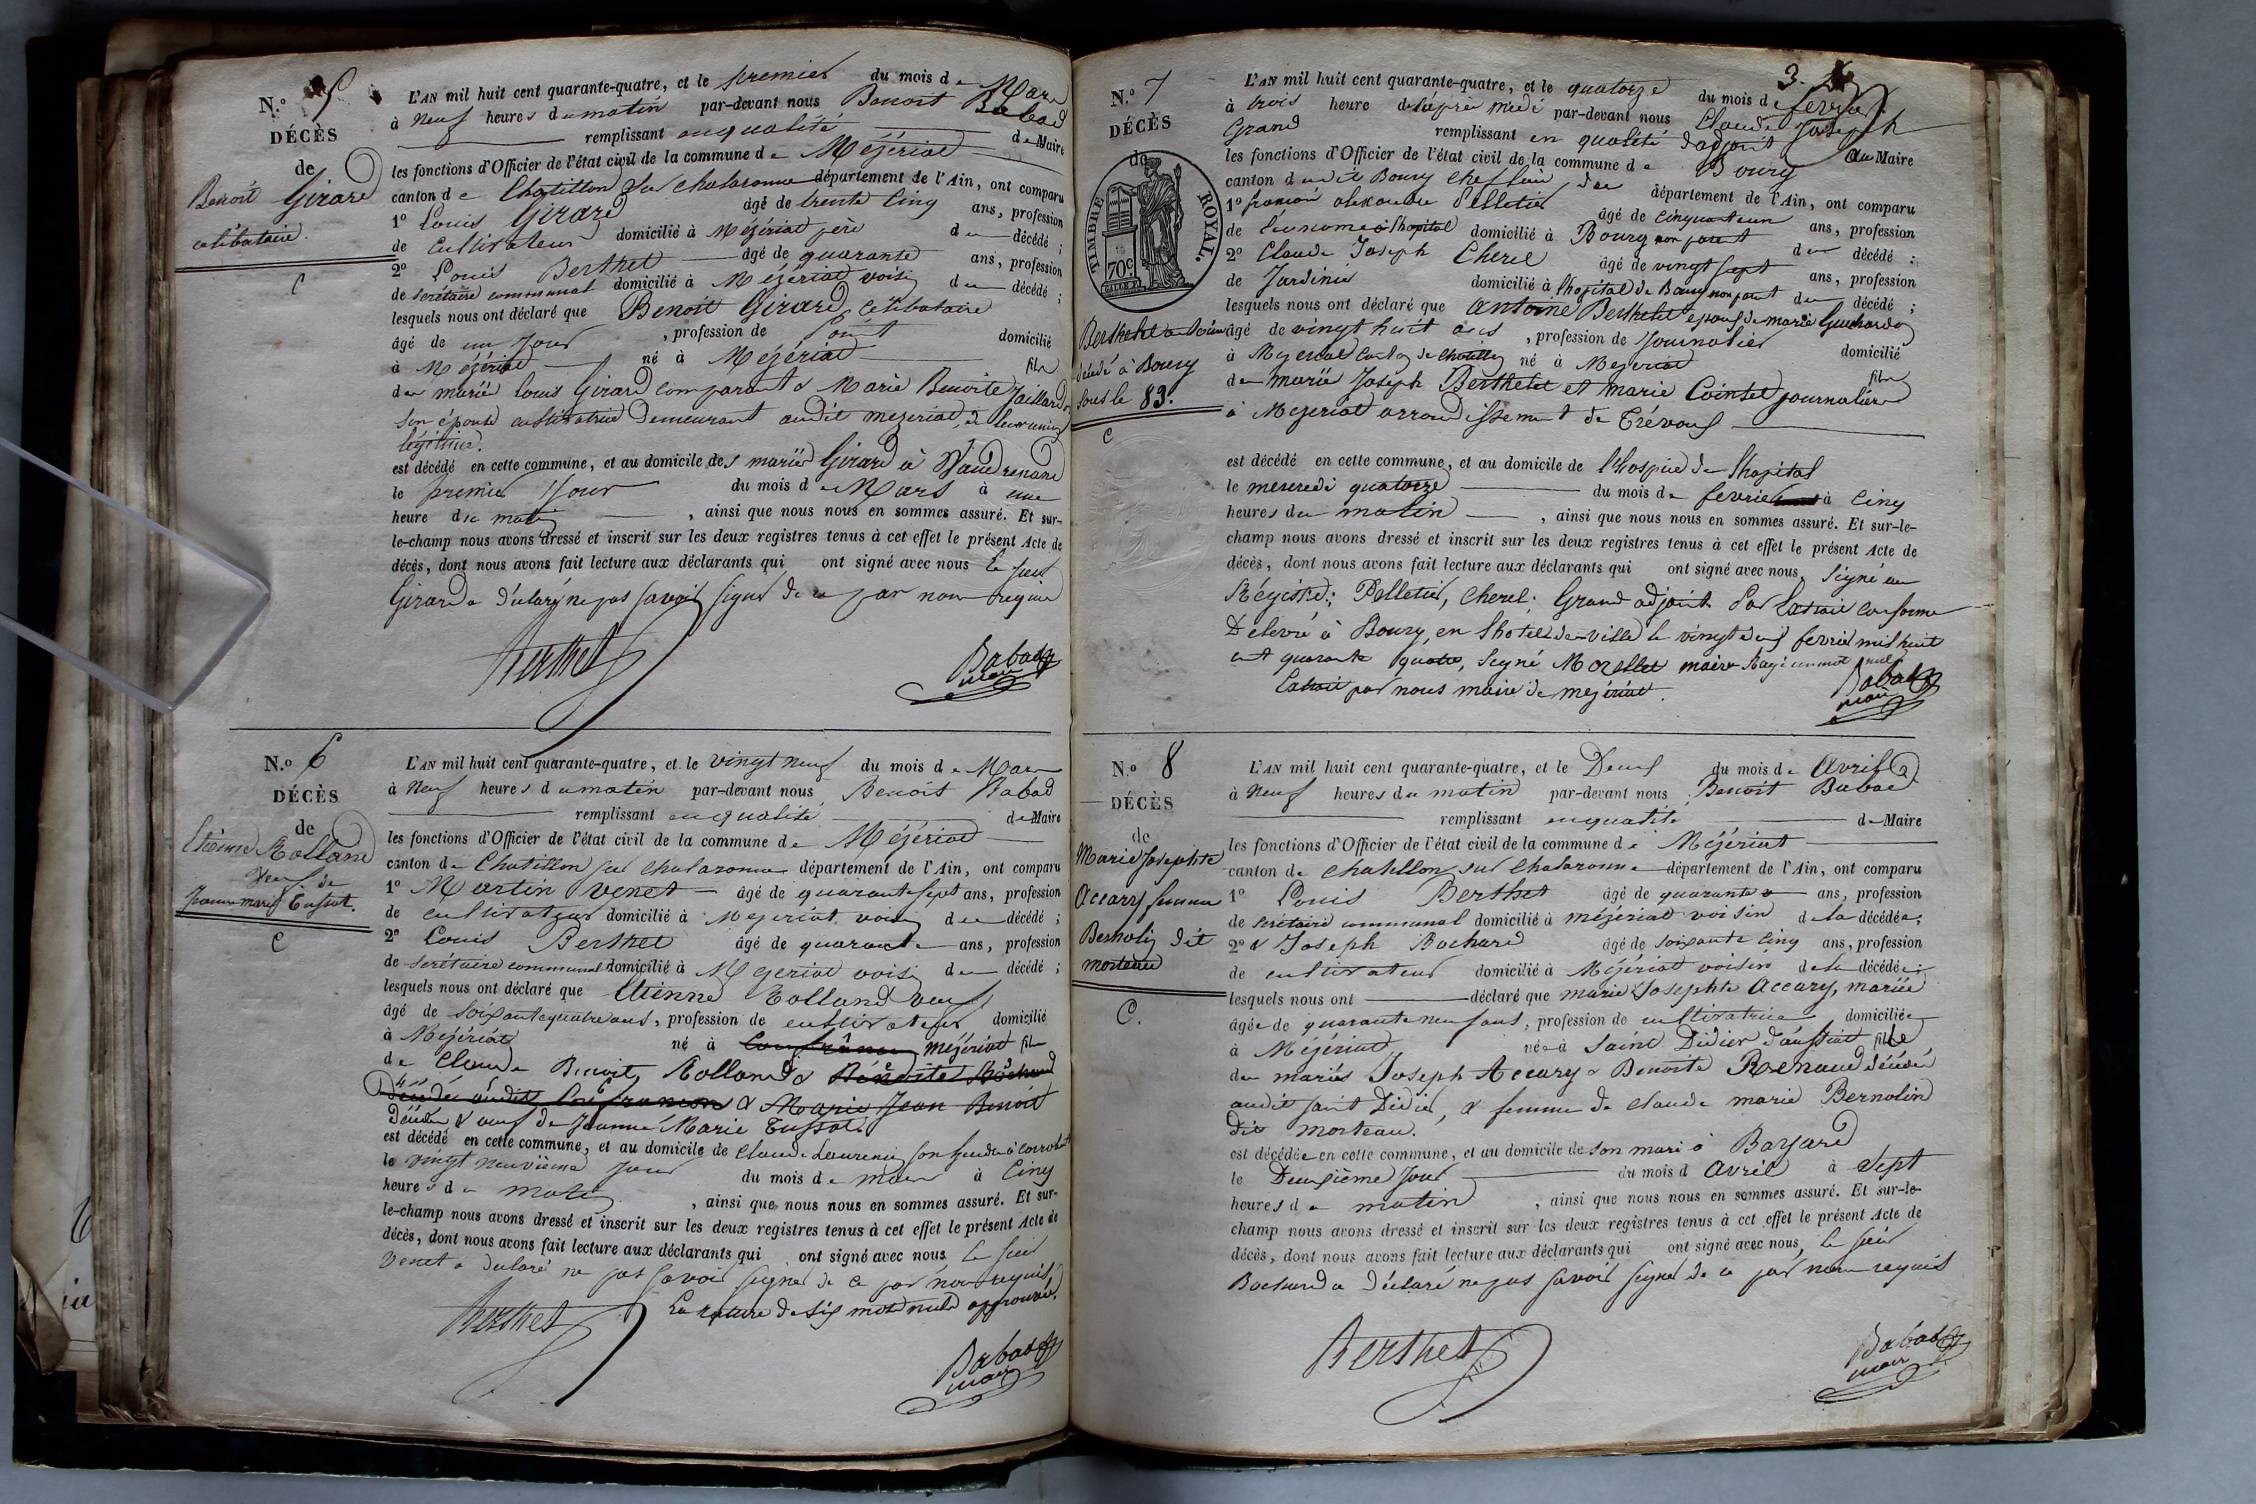 N.º 5
DÉCÈS
de
Benoît Girard
célibataire.
C
L'AN mil huit cent quarante-quatre, et le premier du mois de Mars
à neuf heures du matin par-devant nous Benoit Babad
remplissant en qualité de Maire
les fonctions d'Officier de l'état civil de la commune de Mézériat
canton de Chatillon sur chalaronne département de l'Ain, ont comparu
1º Louis Girard âgé de trente cinq ans, profession
de cultivateur domicilié à Mézériat père du décédé ;
2º Louis Berthet âgé de quarante ans, profession
de secrétaire communal domicilié à Mézériat voisin du décédé ;
lesquels nous ont déclaré que Benoit Girard, célibataire
âgé de un jour, profession de domicilié
à Mézériat né à Mézériat fils
des mariés Louis Girard comparant & Marie Benoite Jaillard
son épouse cultivatrice demeurant audit mezeriat, de leur union
légitime.
est décédé en cette commune, et au domicile des mariés Girard à
le premier jour du mois de Mars à une
heure du matin, ainsi que nous nous en sommes assuré. Et sur-
le-champ nous avons dressé et inscrit sur les deux registres tenus à cet effet le présent Acte de
décès, dont nous avons fait lecture aux déclarants qui ont signé avec nous le sieur
Girard a déclaré ne pas savoir signer de ce par nous requis
Berthet
Babad
maire
N.º 6
DÉCÈS
de
Etienne Rolland
veuf de
Jeanne marie Tussot.
C
L'AN mil huit cent quarante-quatre, et le vingt neuf du mois de Mars
à neuf heures du matin par-devant nous Benoit Babad
remplissant en qualité de Maire
les fonctions d'Officier de l'état civil de la commune de Mézériat
canton de Chatillon sur chalaronne département de l'Ain, ont comparu
1º Martin Venet âgé de quarante sept ans, profession
de cultivateur domicilié à Mezeriat voisin du décédé ;
2º Louis Berthet âgé de quarante ans, profession
de secrétaire communal domicilié à Mezeriat voisin du décédé ;
lesquels nous ont déclaré que Etienne Rolland veuf
âgé de soixante quatre ans, profession de cultivateur domicilié
à Mézériat né à Confrançon mézériat fils
de Claude Benoit Rolland & Bénoite Rochard
décédés audit Confrançon & Marie Jean Benoit
Décédée & veuf de Jeanne Marie Tussot.
est décédé en cette commune, et au domicile de Claude Laurent son gendre à
le vingt neuvième jour du mois de mars à cinq
heures du matin, ainsi que nous nous en sommes assuré. Et sur-
le-champ nous avons dressé et inscrit sur les deux registres tenus à cet effet le présent Acte de
décès, dont nous avons fait lecture aux déclarants qui ont signé avec nous le sieur
Venet a déclaré ne pas savoir signer de ce par nous requis,
La rature de six mots nuls approuvée.
Berthet
Babad
maire
3.
N.º 7
DÉCÈS
de
TIMBRE ROYAL.
70c
Berthelet antoine
décédé à Bourg
sous le 83.
C
L'AN mil huit cent quarante-quatre, et le quatorze du mois de fevrier
à trois heure de l'après midi par-devant nous Claude Joseph
Grand remplissant en qualité d'adjoint au Maire
les fonctions d'Officier de l'état civil de la commune de Bourg
canton dudit Bourg chef lieu du département de l'Ain, ont comparu
1º françois alexandre Pelletier âgé de cinquante un ans, profession
de économe à l'hopital domicilié à Bourg non parent du décédé ;
2º Claude Joseph Cherel âgé de vingt sept ans, profession
de Jardinier domicilié à l'hopital de Bourg non parent du décédé ;
lesquels nous ont déclaré que antoine Berthelet epoux de marie Guichardon
âgé de vingt huit ans, profession de Journalier domicilié
à Mezeriat canton de chatillon né à Mezeriat fils
de mariés Joseph Berthelet et marie Cointet journaliers
à Mezeriat arrondissement de Trévoux
est décédé en cette commune, et au domicile de l'hospice de l'hopital
le mercredi quatorze du mois de fevrier à cinq
heures du matin, ainsi que nous nous en sommes assuré. Et sur-le-
champ nous avons dressé et inscrit sur les deux registres tenus à cet effet le présent Acte de
décès, dont nous avons fait lecture aux déclarants qui ont signé avec nous, signé au
Régistre : Pelletier, Cherel, Grand adjoint Pour Extrait conforme
Délivré à Bourg, en l'hotel-de-ville le vingt deux fevrier mil huit
cent quarante quatre, signé Morellet maire Rayé un mot nul
Extrait par nous maire de mezériat.
Babad
maire
N.º 8
DÉCÈS
de
Marie Josephte
Accary femme
Bernolin dit
morteau
C.
L'AN mil huit cent quarante-quatre, et le Deux du mois de Avril
à neuf heures du matin par-devant nous Benoit Babad
remplissant en qualité de Maire
les fonctions d'Officier de l'état civil de la commune de Mézériat
canton de chatillon sur chalaronne département de l'Ain, ont comparu
1º Louis Berthet âgé de quarante ans, profession
de secrétaire communal domicilié à mézériat voisin de la décédée ;
2º & Joseph Bochard âgé de soixante cinq ans, profession
de cultivateur domicilié à Mézériat voisin de la décédée ;
lesquels nous ont déclaré que marie Josephte Accary, mariée
âgée de quarante neuf ans, profession de cultivatrice domiciliée
à Mézériat née à saint Didier d'aussiat fille
des mariés Joseph Accary & Benoite Renaud décédés
audit saint Didier, & femme de claude marie Bernolin
dit morteau.
est décédée en cette commune, et au domicile de son mari à Bayard
le Deuxième jour du mois d avril à sept
heures du matin, ainsi que nous nous en sommes assuré. Et sur-le-
champ nous avons dressé et inscrit sur les deux registres tenus à cet effet le présent Acte de
décès, dont nous avons fait lecture aux déclarants qui ont signé avec nous, le sieur
Bochard a déclaré ne pas savoir signer de ce par nous requis
Berthet
Babad
maire